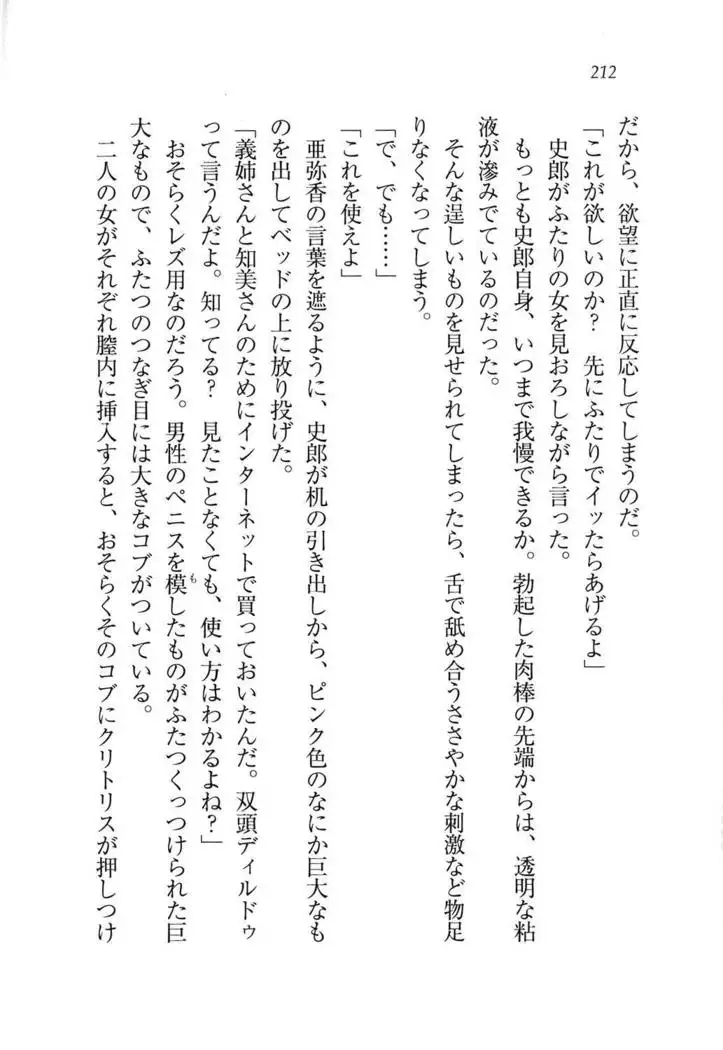 212
だから、欲望に正直に反応してしまうのだ。
「これが欲しいのか?　先にふたりでイッたらあげるよ」
　史郎がふたりの女を見おろしながら言った。
　もっとも史郎自身、いつまで我慢できるか。勃起した肉棒の先端からは、透明な粘
液が滲みでているのだった。
　そんな逞しいものを見せられてしまったら、舌で舐め合うささやかな刺激など物足
りなくなってしまう。
「で、でも……」
「これを使えよ」
　亜弥香の言葉を遮るように、史郎が机の引き出しから、ピンク色のなにか巨大なも
のを出してベッドの上に放り投げた。
「義姉さんと知美さんのためにインターネットで買っておいたんだ。双頭ディルドゥ
って言うんだよ。知ってる?　見たことなくても、使い方はわかるよね?」
　おそらくレズ用なのだろう。男性のペニスを模したものがふたつくっつけられた巨
も
大なもので、ふたつのつなぎ目には大きなコブがついている。
　二人の女がそれぞれ膣内に挿入すると、おそらくそのコブにクリトリスが押しつけ